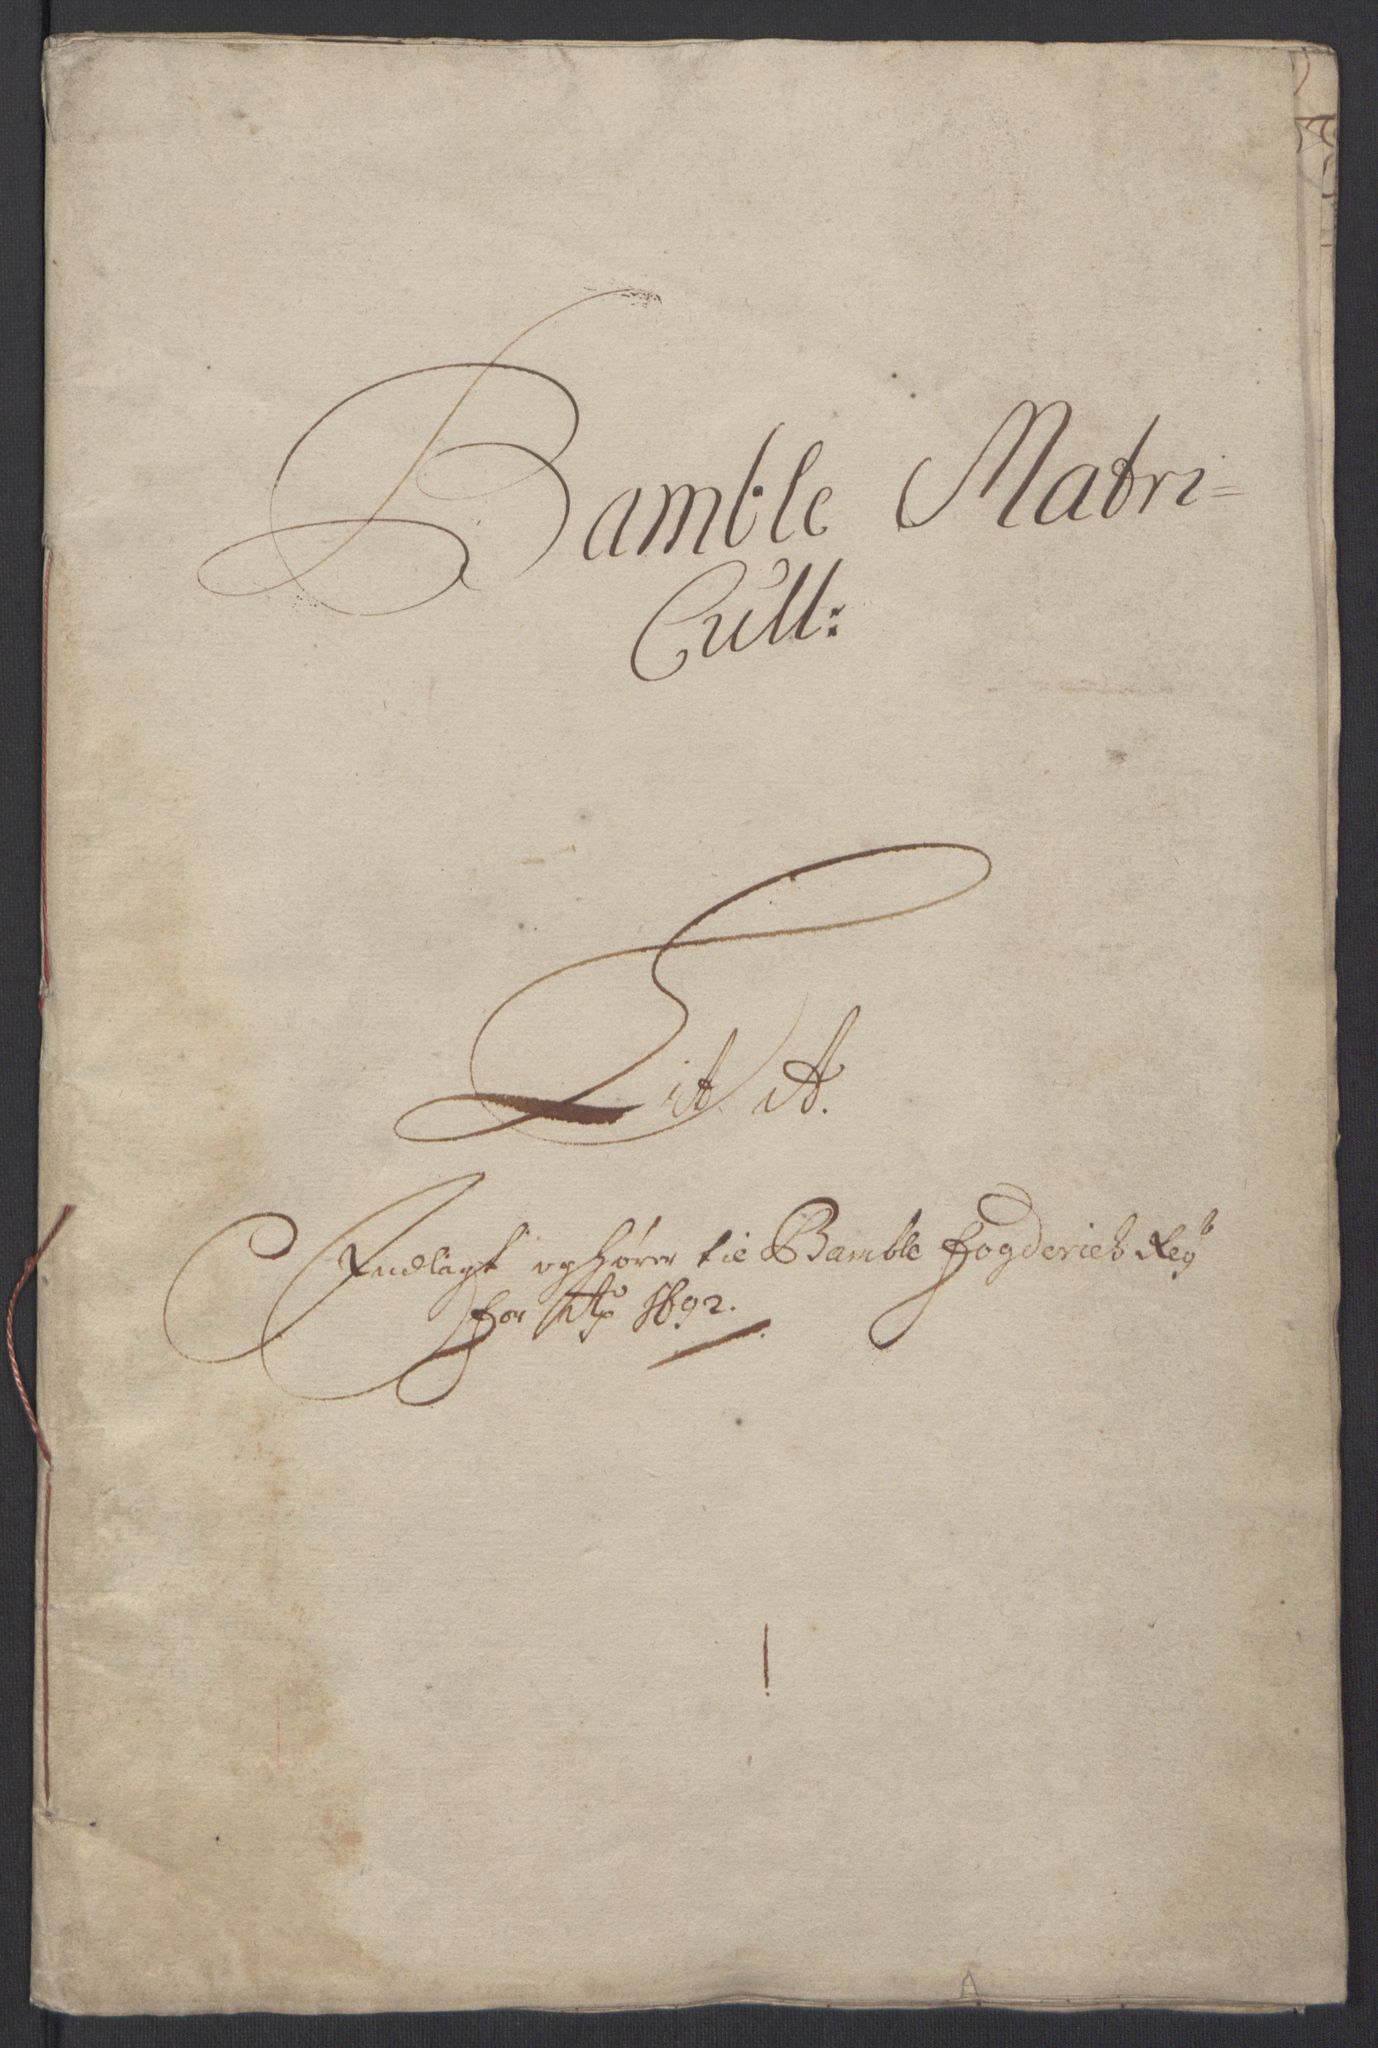 Bamble Matri=
Cull:
Lit. A.
Indlagt og hører til Bamble fogderies Regsb
for Ao 1692.
A